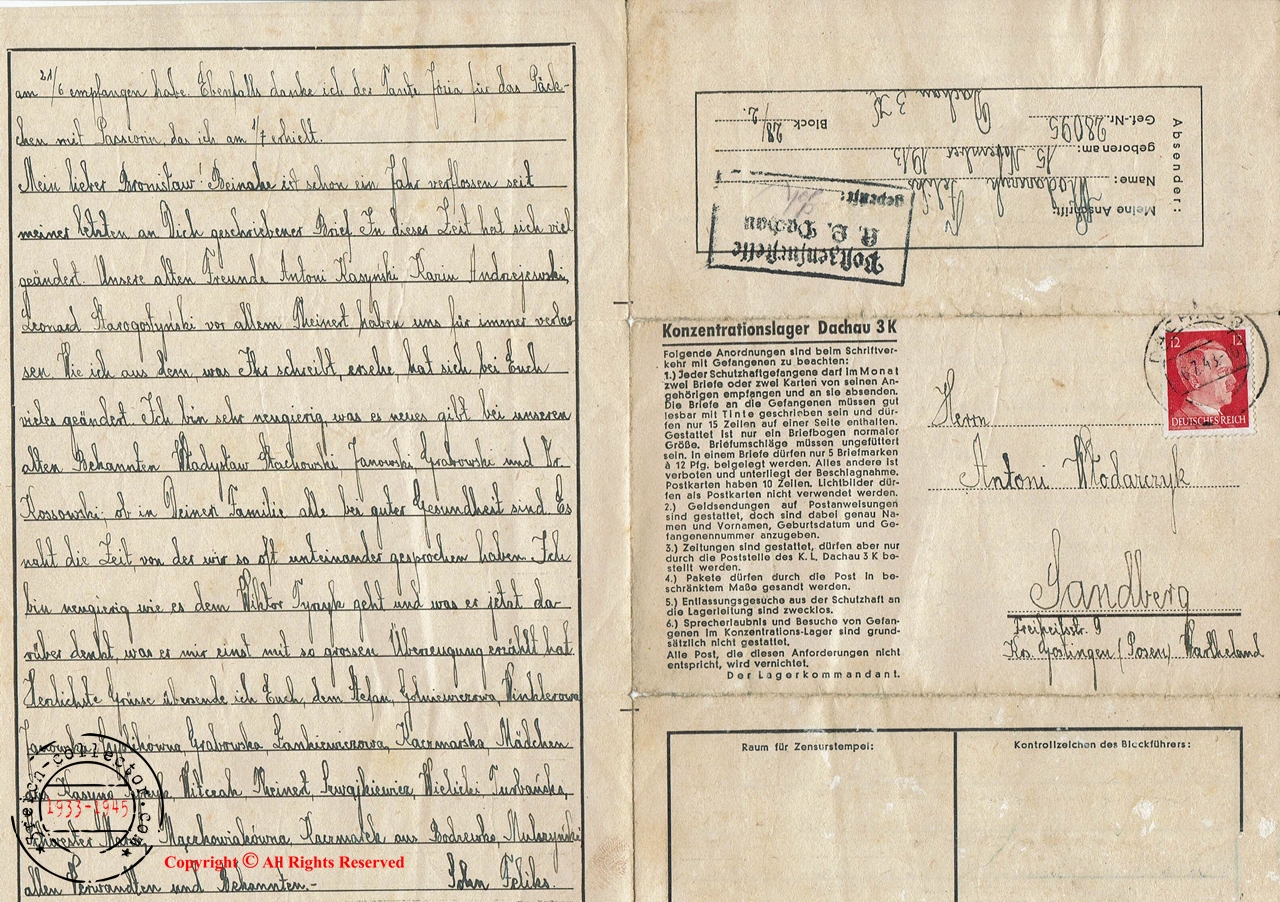 am 21/6 empfangen habe. Ebenfalls danke ich der Tante Józia für das Päck-
chen mit Passiorin, das ich am 1/7 erhielt.
Mein lieber Bronisław! Beinahe ist schon ein Jahr verflossen seit
meiner letzten an Dich geschriebener Brief. In dieser Zeit hat sich viel
geändert. Unsere alten Freunde Antoni Kasynski Karin Andrzejewski,
Leonard Starogostyński vor allem Rheinert haben uns für immer verlas
sen. Wie ich aus dem, was Ihr schreibt, ersehe, hat sich bei Euch
vieles geändert. Ich bin sehr neugierig, was es neues gibt bei unseren
alten Bekannten Władysław Stachowski, Janowski, Grabowski und Kr.
Kossowski, ob in Deiner Familie alle bei guter Gesundheit sind. Es
naht die Zeit, von der wir so oft untereinander gesprochen haben. Ich
bin neugierig wie es dem Wiktor geht und was er jetzt da-
rüber denkt, was er mir einst mit so grossen Überzeugung erzählt hat.
Herzlichste Grüsse übersende ich Euch, dem Stefan, Golniewiczowa, Winklerowa
Janowska, Grabowska, Zankiewiczowa, Kaczmarska, Mädchen
aus Kasyno, Witczak, Rheinert, Szwajkiewicz, Wielicki, Turbańska,
Schwester Maria, Mąchowiakówna, Kaczmarek aus Bodzewko, Mulczynski
allen Verwandten und Bekannten.- Sohn Feliks.
Absender:
Meine Anschrift:
Name: Włodarczyk Feliks
geboren am: 15 November 1913
Gef.-Nr. 28095 Block 28/2.
Dachau 3 K.
Postzensurstelle
K. L. Dachau
geprüft:
Konzentrationslager Dachau 3 K
Folgende Anordnungen sind beim Schriftver-
kehr mit Gefangenen zu beachten:
1.) Jeder Schutzhaftgefangene darf im Monat
zwei Briefe oder zwei Karten von seinen An-
gehörigen empfangen und an sie absenden.
Die Briefe an die Gefangenen müssen gut
lesbar mit Tinte geschrieben sein und dür-
fen nur 15 Zeilen auf einer Seite enthalten.
Gestattet ist nur ein Briefbogen normaler
Größe. Briefumschläge müssen ungefüttert
sein. In einem Briefe dürfen nur 5 Briefmarken
à 12 Pfg. beigelegt werden. Alles andere ist
verboten und unterliegt der Beschlagnahme.
Postkarten haben 10 Zeilen. Lichtbilder dür-
fen als Postkarten nicht verwendet werden.
2.) Geldsendungen auf Postanweisungen
sind gestattet, doch sind dabei genau Na-
men und Vornamen, Geburtsdatum und Ge-
fangenennummer anzugeben.
3.) Zeitungen sind gestattet, dürfen aber nur
durch die Poststelle des K. L. Dachau 3 K be-
stellt werden.
4.) Pakete dürfen durch die Post in be-
schränktem Maße gesandt werden.
5.) Entlassungsgesuche aus der Schutzhaft an
die Lagerleitung sind zwecklos.
6.) Sprecherlaubnis und Besuche von Gefan-
genen im Konzentrations-Lager sind grund-
sätzlich nicht gestattet.
Alle Post, die diesen Anforderungen nicht
entspricht, wird vernichtet.
Der Lagerkommandant.
DACHAU
7.43
12 12
DEUTSCHES REICH
Herrn
Antoni Włodarczyk
Sandberg
Freiheitsstr. 9
Kr. Gostingen (Posen) Wartheland
Raum für Zensurstempel:
Kontrollzeichen des Blockführers:
stench-collector.com
1933-1945
Copyright © All Rights Reserved